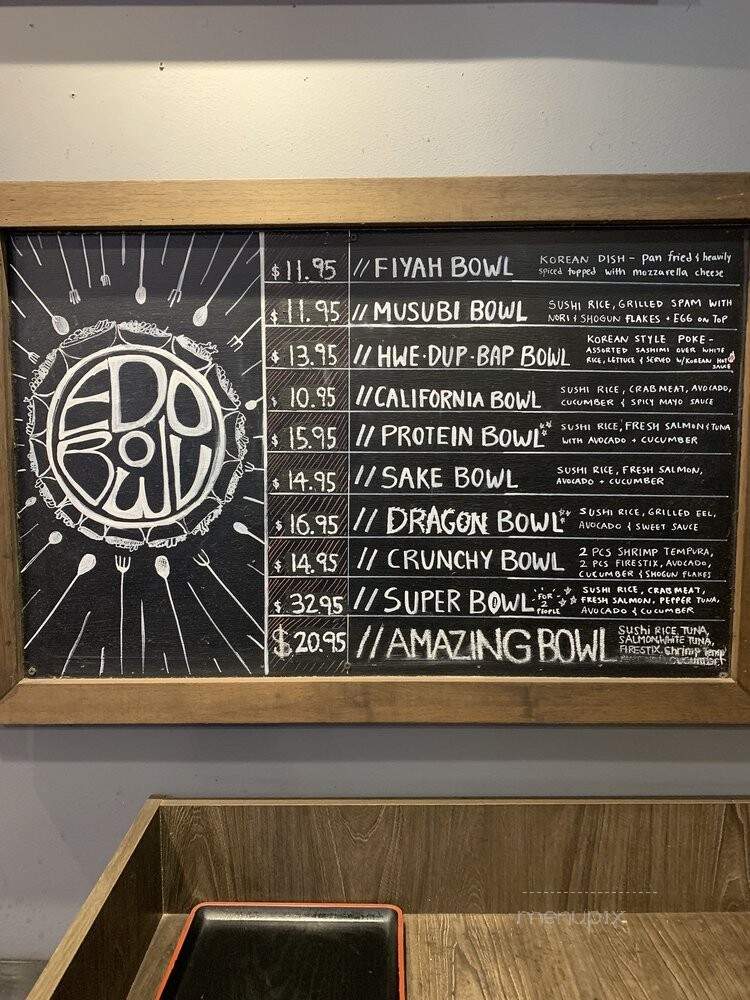 EDO
BOWL
$11.95 // FIYAH BOWL KOREAN DISH - pan fried & heavily
spiced topped with mozzarella cheese
$11.95 // MUSUBI BOWL SUSHI RICE, GRILLED SPAM WITH
NORI & SHOGUN FLAKES + EGG ON TOP
$13.95 // HWE·DUP·BAP BOWL KOREAN STYLE POKE-
ASSORTED SASHIMI OVER WHITE
RICE, LETTUCE & SERVED W/KOREAN HOT
SAUCE
$10.95 // CALIFORNIA BOWL SUSHI RICE, CRABMEAT, AVOCADO,
CUCUMBER & SPICY MAYO SAUCE
$15.95 // PROTEIN BOWL SUSHI RICE, FRESH SALMON & TUNA
WITH AVOCADO + CUCUMBER
$14.95 // SAKE BOWL SUSHI RICE, FRESH SALMON,
AVOCADO + CUCUMBER
$16.95 // DRAGON BOWL SUSHI RICE, GRILLED EEL,
AVOCADO & SWEET SAUCE
$14.95 // CRUNCHY BOWL 2 PCS SHRIMP TEMPURA,
2 PCS FIRESTIX, AVOCADO,
CUCUMBER & SHOGUN FLAKES
$32.95 // SUPER BOWL FOR 2 PEOPLE SUSHI RICE, CRABMEAT,
FRESH SALMON, PEPPER TUNA,
AVOCADO & CUCUMBER
$20.95 // AMAZING BOWL Sushi RICE, TUNA,
SALMON, WHITE TUNA,
FIRESTIX, Shrimp Temp
CUCUMBER
menupix